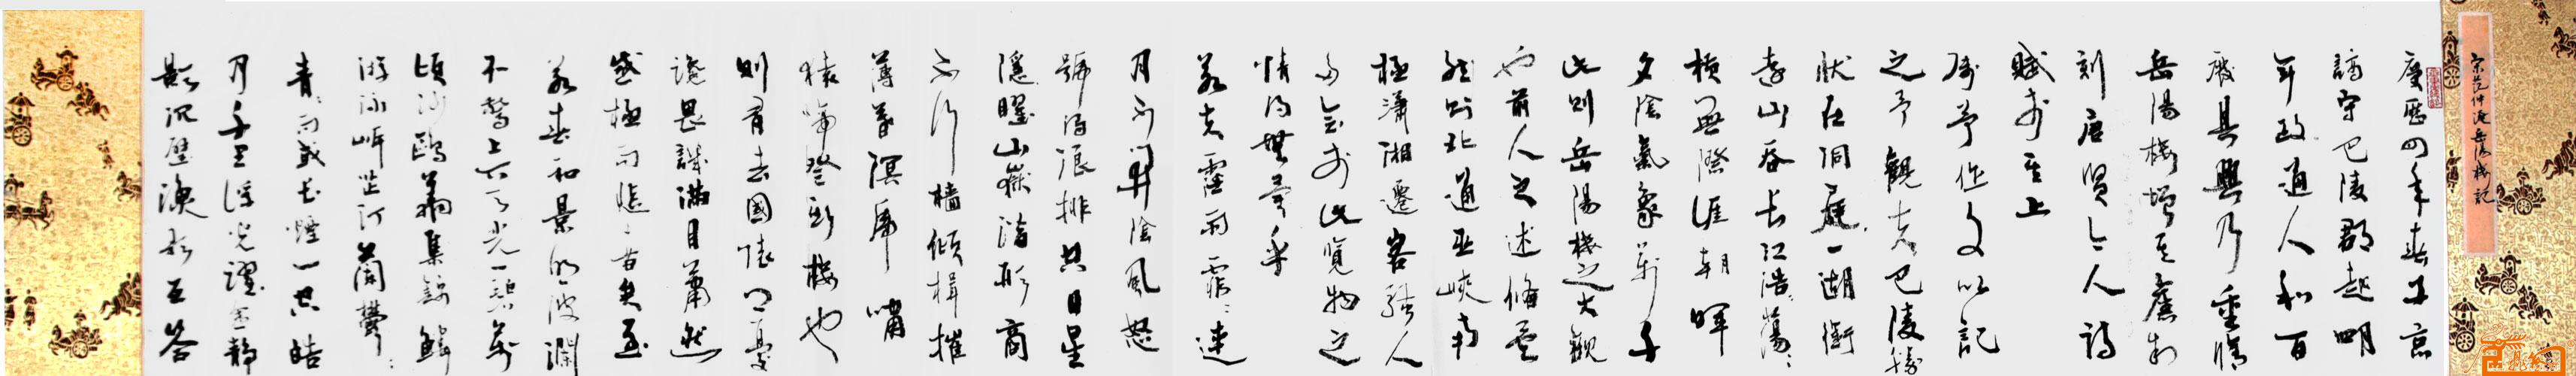 宋范仲淹岳陽樓記
慶歷四年春子京
謫守巴陵郡越明
年政通人和百
廢具興乃重脩
岳陽樓增其舊制
刻唐賢今人詩
賦於其上
屬予作文以記
之予觀夫巴陵勝
狀在洞庭一湖銜
遠山吞長江浩浩蕩蕩
橫無際涯朝暉
夕陰氣象萬千
此則岳陽樓之大觀
也前人之述備矣
然則北通巫峽南
極瀟湘遷客騷人
多會於此覽物之
情得無異乎
若夫霪雨霏霏連
月不開陰風怒
號濁浪排空日星
隱曜山嶽潛形商
不行檣傾楫摧
薄暮溟虎嘯
猿啼登斯樓也
則有去國懷鄉憂
讒畏譏滿目蕭然
感極而悲悲者矣至
若春和景明波瀾
不驚上下天光一碧萬
頃沙鷗翔集錦鱗
游泳岸芷汀蘭鬱鬱
青青而或長煙一空皓
月千里浮光躍金靜
影沉璧漁歌互答